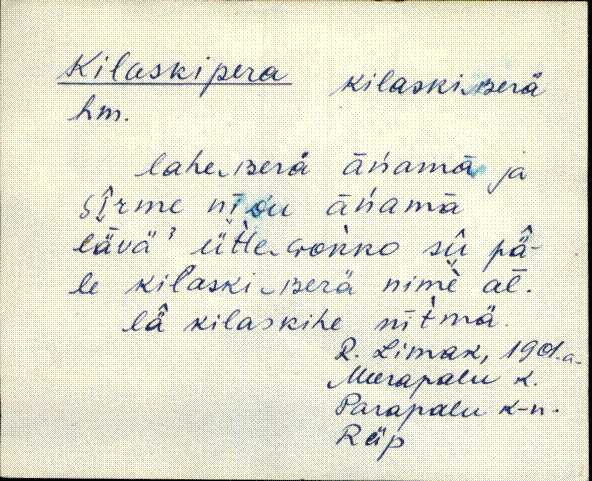 Kilaskipera kilaski‿ʙerä
hm.
lahe‿ʙerä äńämä ja
sîrme nīᴅu äńämä
lävä' üt̀te‿ɢoǹko sū̂ pä̂-
le kilaski‿ʙerä nimè al.
lä̂ kilaskihe nīt̀mä.
R. Limak, 1901.a.
Meerapalu k.
Parapalu k-n.
Räp